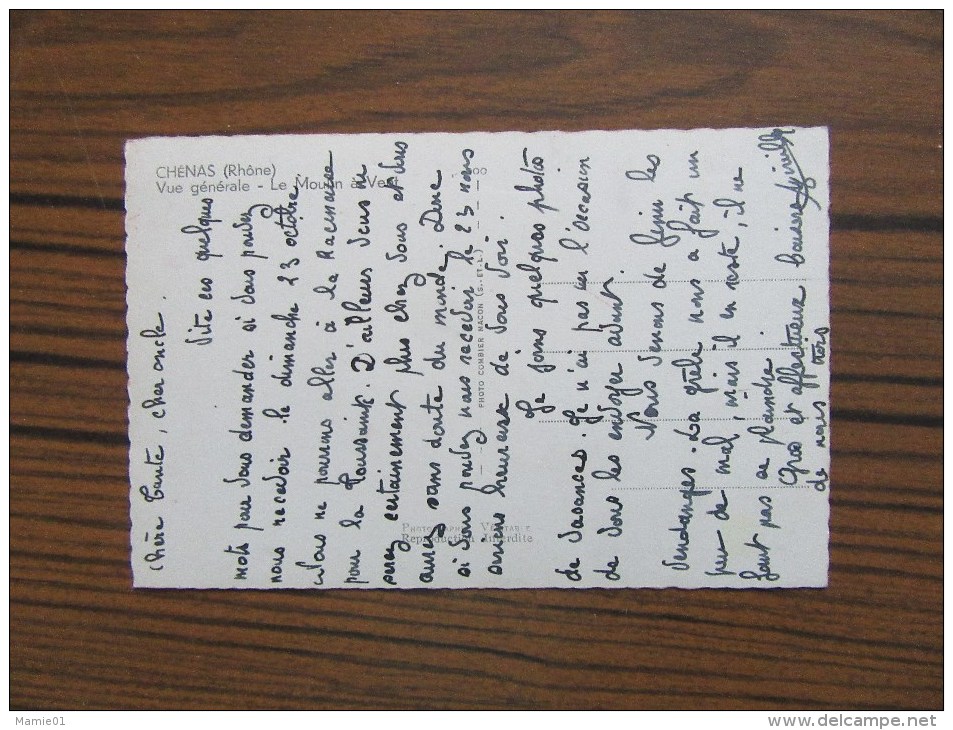 CHÉNAS (Rhône)
Vue générale - Le Moulin à Vent
PHOTO COMBIER MACON (S.-ET-L.)
PHOTOGRAPHIE VÉRITABLE
Reproduction Interdite
Chère Tante, cher oncle.
Vite en quelques
mots pour vous demander si vous pouvez
nous recevoir le dimanche 23 octobre.
Nous ne pourrons aller à la
pour la Toussaint. D'ailleurs vous ne
serez certainement plus chez vous et vous
aurez sans doute du monde. Donc
si vous pouvez nous recevoir le 23 nous
serions heureux de vous voir.
Je joins quelques photos
de vacances. Je n'ai pas eu l'occasion
de vous les envoyer avant.
Nous venons de finir les
vendanges. La grêle nous a fait un
peu de mal, mais il en reste, il ne
faut pas se plaindre.
Gros et affectueux baisers
de nous trois
Mamie01
http://www.delcampe.net